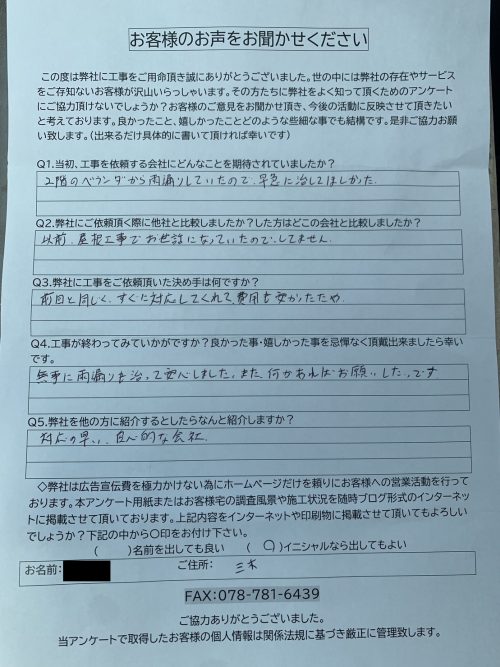 お客様のお声をお聞かせください
この度は弊社に工事をご用命頂き誠にありがとうございました。世の中には弊社の存在やサービス
をご存知ないお客様が沢山いらっしゃいます。その方たちに弊社をよく知って頂くためのアンケート
にご協力頂けないでしょうか？お客様のご意見をお聞かせ頂き、今後の活動に反映させて頂きたい
と考えております。良かったこと、嬉しかったことどのような些細な事でも結構です。是非ご協力お願
い致します。（出来るだけ具体的に書いて頂ければ幸いです）
Q1.当初、工事を依頼する会社にどんなことを期待されていましたか？
2階のベランダから雨漏りしていたので、早急に治してほしかった
Q2.弊社にご依頼頂く際に他社と比較しましたか？した方はどこの会社と比較しましたか？
以前、屋根工事でお世話になっていたので、してません。
Q3.弊社に工事をご依頼頂いた決め手は何ですか？
前回と同じく、すぐに対応してくれて、費用も安かったため
Q4.工事が終わってみていかがですか？良かった事・嬉しかった事を忌憚なく頂戴出来ましたら幸い
です。
無事に雨漏りも治って安心しました。また何かあればお願いしたいです
Q5.弊社を他の方に紹介するとしたらなんと紹介しますか？
対応の早い、良心的な会社
◇弊社は広告宣伝費を極力かけない為にホームページだけを頼りにお客様への営業活動を行って
おります。本アンケート用紙またはお客様宅の調査風景や施工状況を随時ブログ形式のインターネッ
トに掲載させて頂いております。上記内容をインターネットや印刷物に掲載させて頂いてもよろしい
でしょうか？下記の中から〇印をお付け下さい。
（　　）名前を出しても良い　（ ○ ）イニシャルなら出してもよい
お名前：　ご住所：　三木
FAX：078-781-6439
ご協力ありがとうございました。
当アンケートで取得したお客様の個人情報は関係法規に基づき厳正に管理致します。